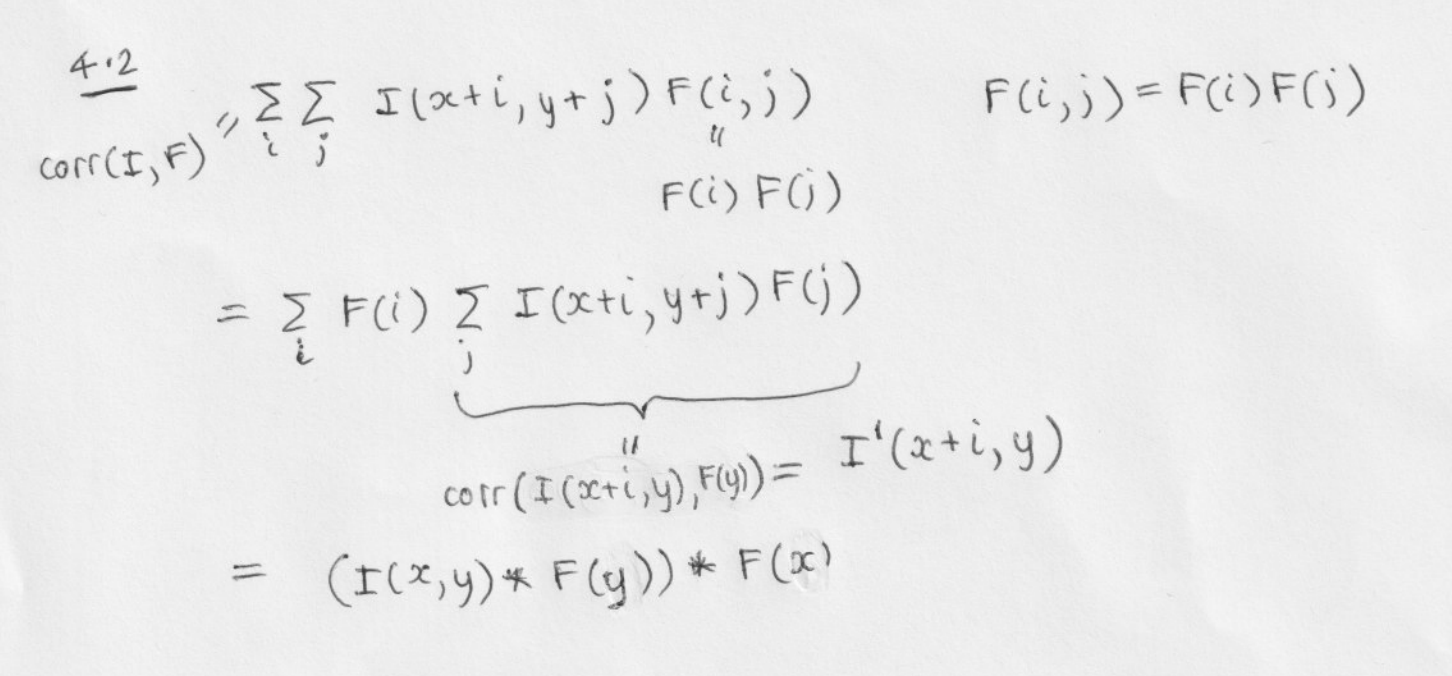 4.2
corr(I,F) = Σ_i Σ_j I(x+i, y+j) F(i,j) F(i,j) = F(i) F(j)
"
F(i) F(j)
= Σ_i F(i) Σ_j I(x+i, y+j) F(j)
"
corr(I(x+i,y), F(y)) = I'(x+i, y)
= (I(x,y) * F(y)) * F(x)